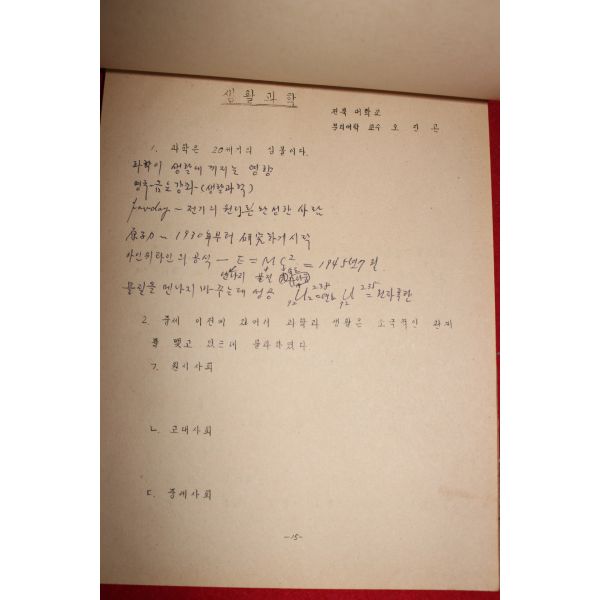 생활과학
전북 대학교
문리대학 교수 오 진 곤
1. 과학은 20세기의 심볼이다.
과학이 생활에 끼치는 영향
영국-금요강좌-(생활과학)
faraday - 전기의 원리를 완성한 사람
原子力 - 1930年부터 研究하기 시작
아인쉬타인의 공식 - E = M C² = 1945년 7월
에너지 물질 광속
물질을 에너지 바꾸는데 성공 92U238 = 연료 92U235 = 원자폭탄
2. 중세 이전에 있어서 과학과 생활은 소극적인 관계
를 맺고 있는데 불과하였다.
ㄱ. 원시사회
ㄴ. 고대사회
ㄷ. 중세사회
-15-